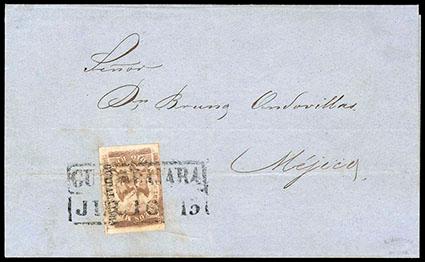 Señor
Dn Bruno Andovillas
Méjico
GUADALAJARA
JULIO 15